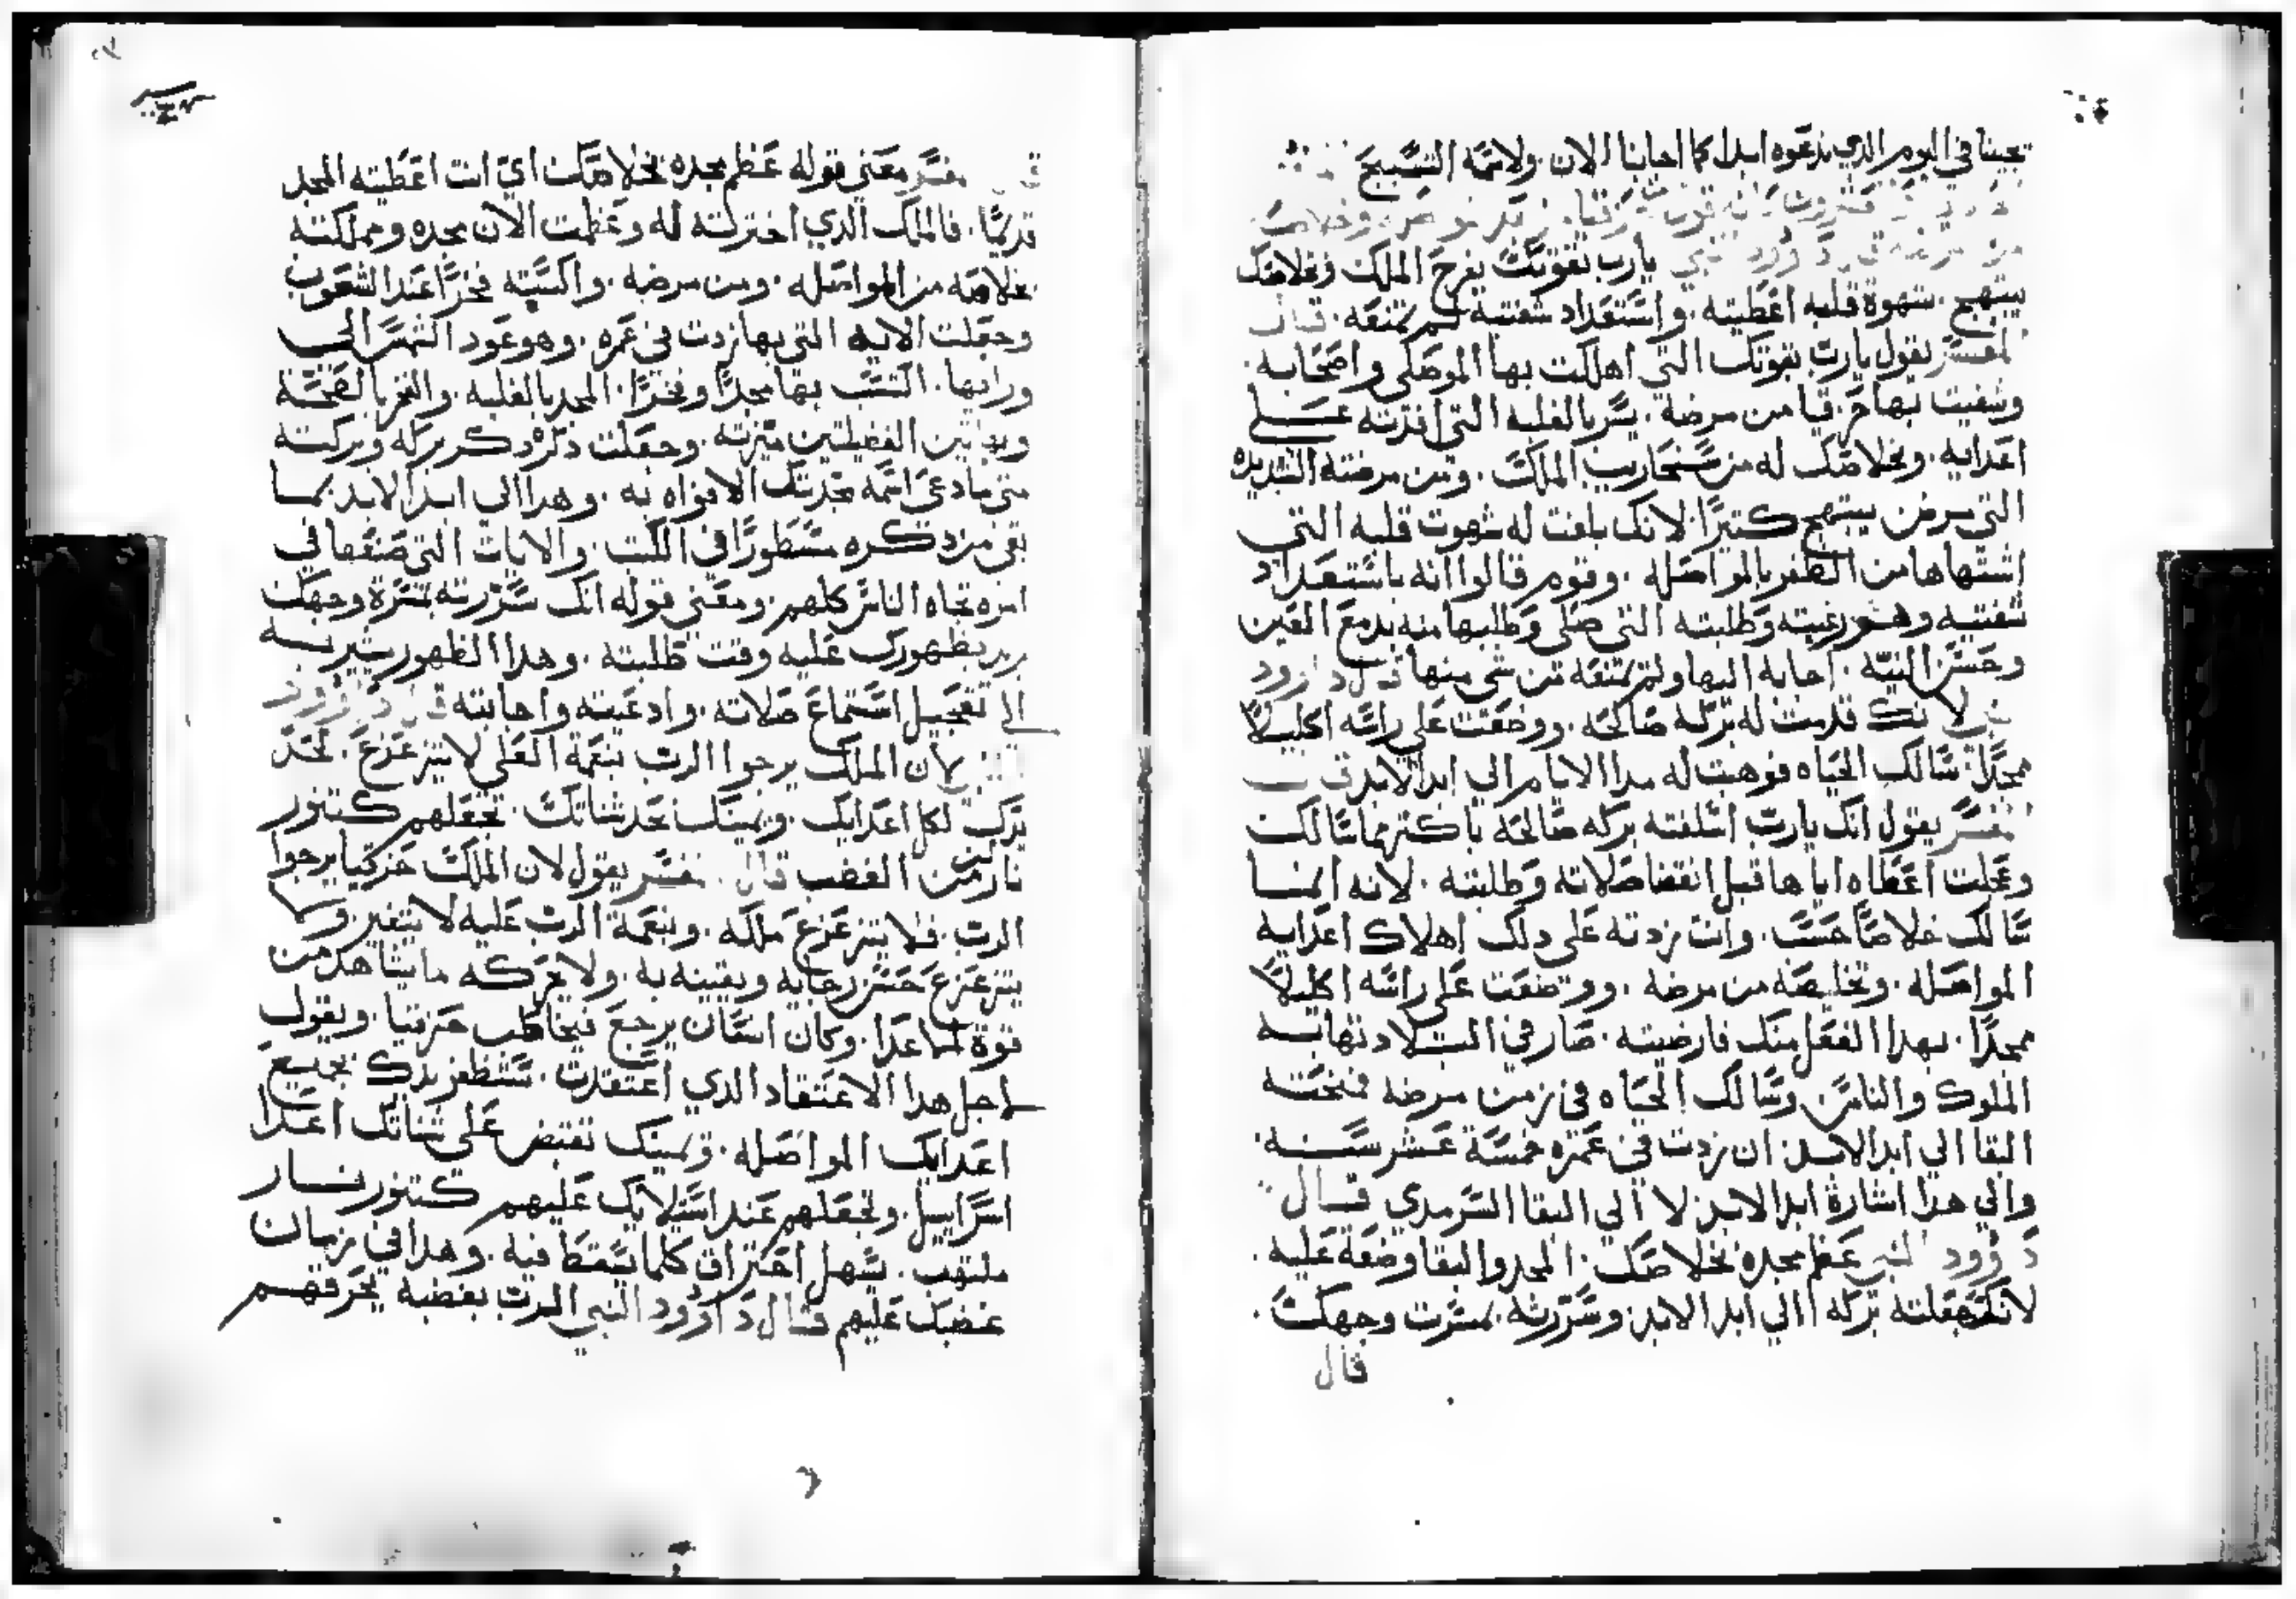 تجيبنا في اليوم الذي ندعوه ابدا كما اجابنا الان. ولاسمه التسبيح
يارب بقوتك يفرح الملك وبخلاصك
يبتهج. شهوة قلبه اعطيته. واستعداد شفتيه لم تمنعه. قال
المفسر يقول يارب بقوتك التي اهلكت بها الموصلي واصحابه.
وشفيت بها حزقيا من مرضه. يسر بالغلبه التي افدته علي
اعدايه. وبخلاصك له من سنحاريب الملك. ومن مرضته الشديده
التي مرض يبتهج كتيرًا. لانك بلغت له شهوت قلبه التي
اشتهاها من الظفر بالمواصله. وقوم قالوا انه باستعداد
شفتيه وهو رغبته وطلبته التي صلي وطلبها منه بدمع العين
وحسن النيه. اجابه اليها ولم تمنعه من شي منها قال داوود
النبي لانك قدمت له بركه صالحه. ووضعت علي راسه اكليلاً
مجدًا. سالك الحياه فوهبت له مدا الايام الي ابد الابد قال
المفسر يقول انك يارب اسلفته بركه صالحه باكتر مما سالك
وعجلت اعطاه اياها قبل انقضا صلاته وطلبته. لانه انما
سالك خلاصًا حسب. وانت زدته علي دلك اهلاك اعدايه
المواصله. وتخليصه من مرضه. ووضعت علي راسه اكليلاً
مجدًا. بهدا الفعل منك فارضيته. صار في البلاد تهابه
الملوك والناس. وسالك الحياه في زمن مرضه فمنحته
البقا الي ابد الابد. ان زدت في عمره خمسة عشر سنه.
والي هدا اشارة ابد الابد. لا الي البقا السرمدي قال
داوود النبي عظم مجده بخلاصك. المجد والبقا وضعة عليه.
لانك جعلته بركه الي ابد الابد. وسررته بمسرت وجهك.
قال
المفسر معني قوله عظم مجده بخلاصك اي انت اعطيته المجد
قديمًا. فالملك الذي اخترته له وعظمت الان مجده ومملكته
بخلاصه من المواصله. ومن مرضه. واكسبته فخرًا عند الشعوب
وجعلت الايه التي بها زدت في عمره. وهو عود الشمس الي
ورايها. اكتسب بها مجدًا وفخرًا. المجد بالغلبه. والفخر بالصحه
وبهاتين الفضيلتين ميزته. وجعلت ذكره دكر بركه وبركته
متي ما دعي اسمه مجدتك الافواه به. وهدا الي ابد الابد بما
بقي من دكره مسطورًا في الكتب. والايات التي صنعها في
امره تجاه الناس كلهم. ومعني قوله انك سررته بمسرة وجهك
يريد بظهورك عليه وقت طلبته. وهدا الظهور يشير به
الي تعجيل استماع صلاته. وادعيته واجابته قال داوود
النبي لان الملك يرجوا الرب بنعمة العلي لا يتزعزع. تجد
يدك لكل اعدايك. ويمينك تجد شناتك. تجعلهم كتنور
نار من الغضب قال المفسر يقول لان الملك حزقيا يرجوا
الرب. فلا يتزعزع ملكه. وبنعمة الرب عليه لا يتغير. ولا
يتزعزع حسن رجايه ويقينه به. ولا يحركه ما يشاهد من
قوة لما عدا. وكان اسان يرجع فيخاطب حزقيا. ويقول
لاجل هدا الاعتقاد الذي اعتقدت. ستظفر يدك بجميع
اعدايك المواصله. ويمينك تقبض علي شناتك اعدا
اسراييل. وتجعلهم عند استيلايك عليهم كتنور نار
ملتهب. يسهل احتراق كلما يسقط فيه. وهدا في زمان
غضبك عليهم قال داوود النبي الرب بغضبه يحرقهم